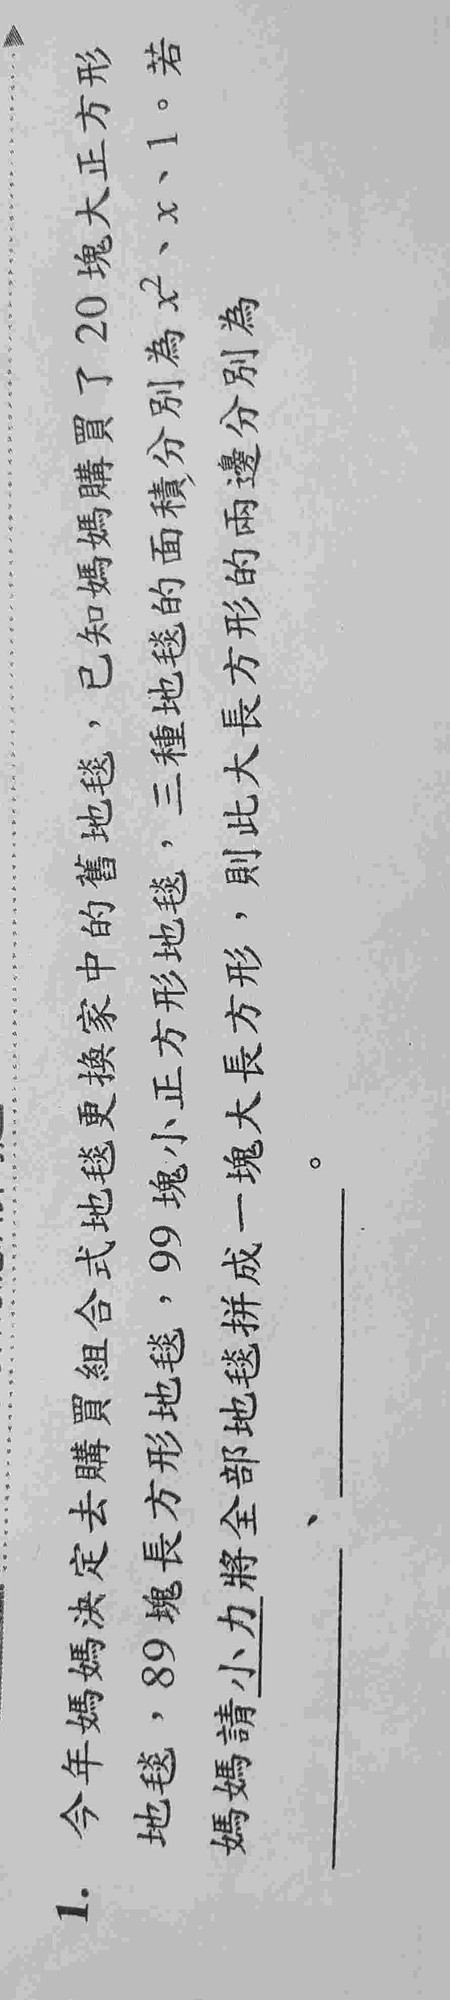 1. 今年媽媽決定去購買組合式地毯更換家中的舊地毯，已知媽媽購買了 20 塊大正方形
地毯，89 塊長方形地毯，99 塊小正方形地毯，三種地毯的面積分別為 x²、x、1。若
媽媽請小力將全部地毯拼成一塊大長方形，則此大長方形的兩邊分別為
＿＿＿＿＿＿、＿＿＿＿＿＿。